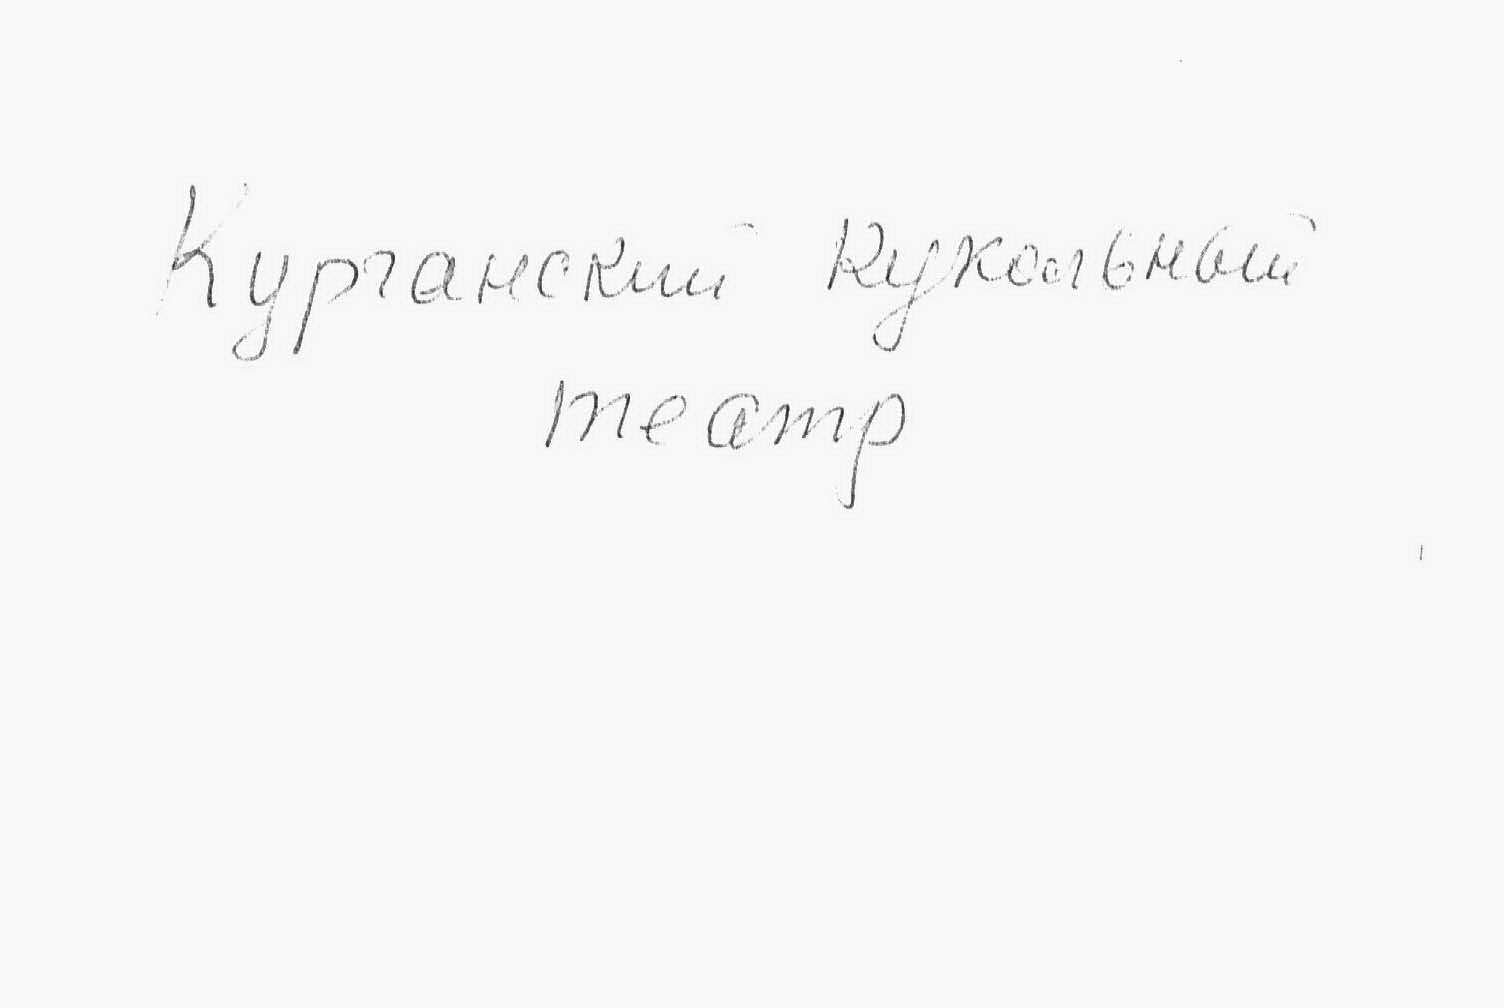 Курганский кукольный
театр